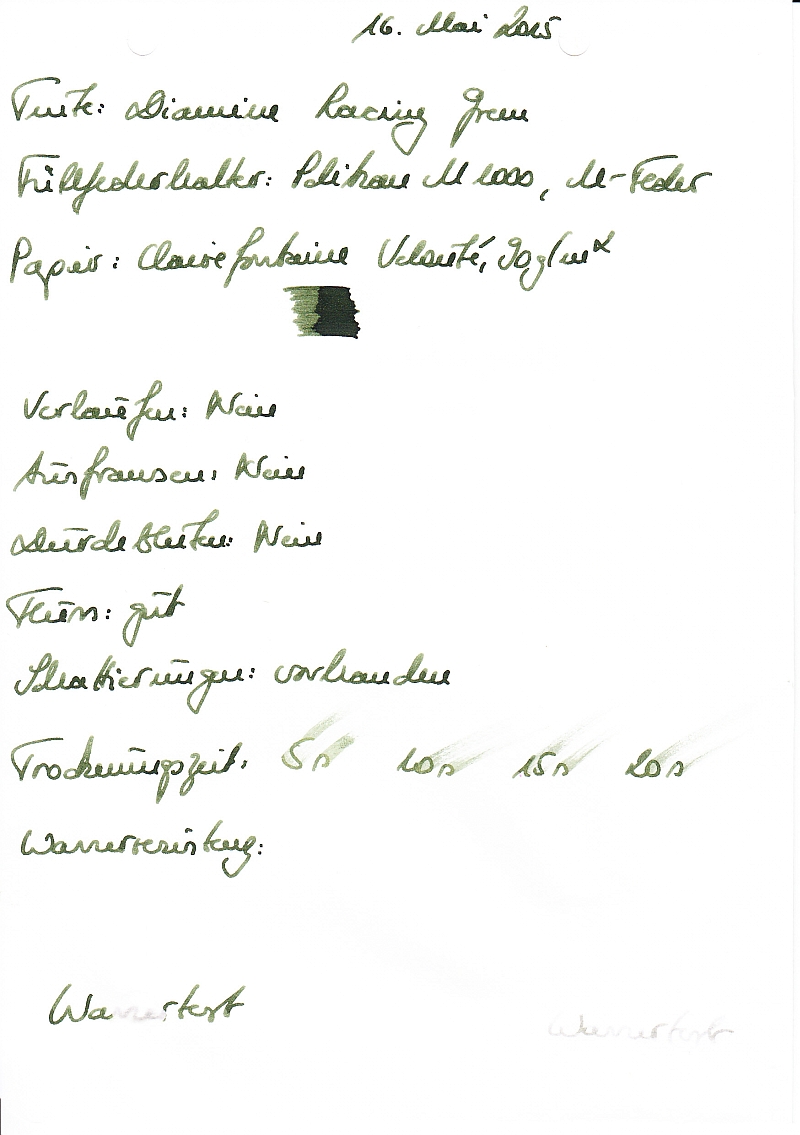 16. Mai 2015
Tinte: Diamine Racing Green
Füllfederhalter: Pelikan M1000, M-Feder
Papier: Clairefontaine Velouté, 90g/m²
Verlaufen: Nein
Ausfransen: Nein
Durchbluten: Nein
Fluss: gut
Schattierungen: vorhanden
Trocknungszeit: 5s 10s 15s 20s
Wasserresistenz:
Wassertest Wassertest